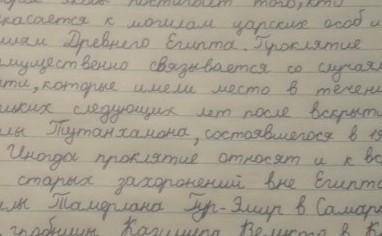 постигает того, кто
касается к могилам царских особ и
Древнего Египта. Проклятие
мущественно связывается со случая
ти, которые имели место в течени
следующих лет после вскрыти
Тутанхамона, состоявшегося в 19
Иногда проклятие относят и к в
старых захоронений вне Египта
лы Тамерлана Гур-Эмир в Самар
гробницы Казимира Великого в К